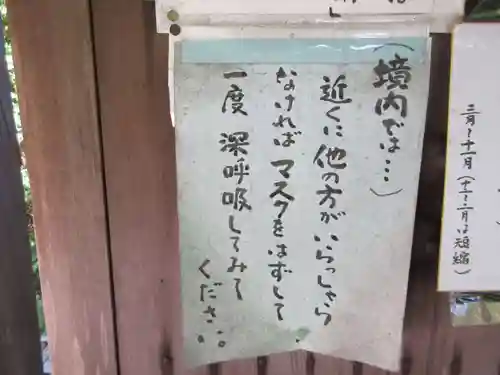 （境内では…）
近くに他の方がいらっしゃら
なければマスクをはずして
一度深呼吸してみて
ください。
三月〜十一月（十二〜二月は短縮）